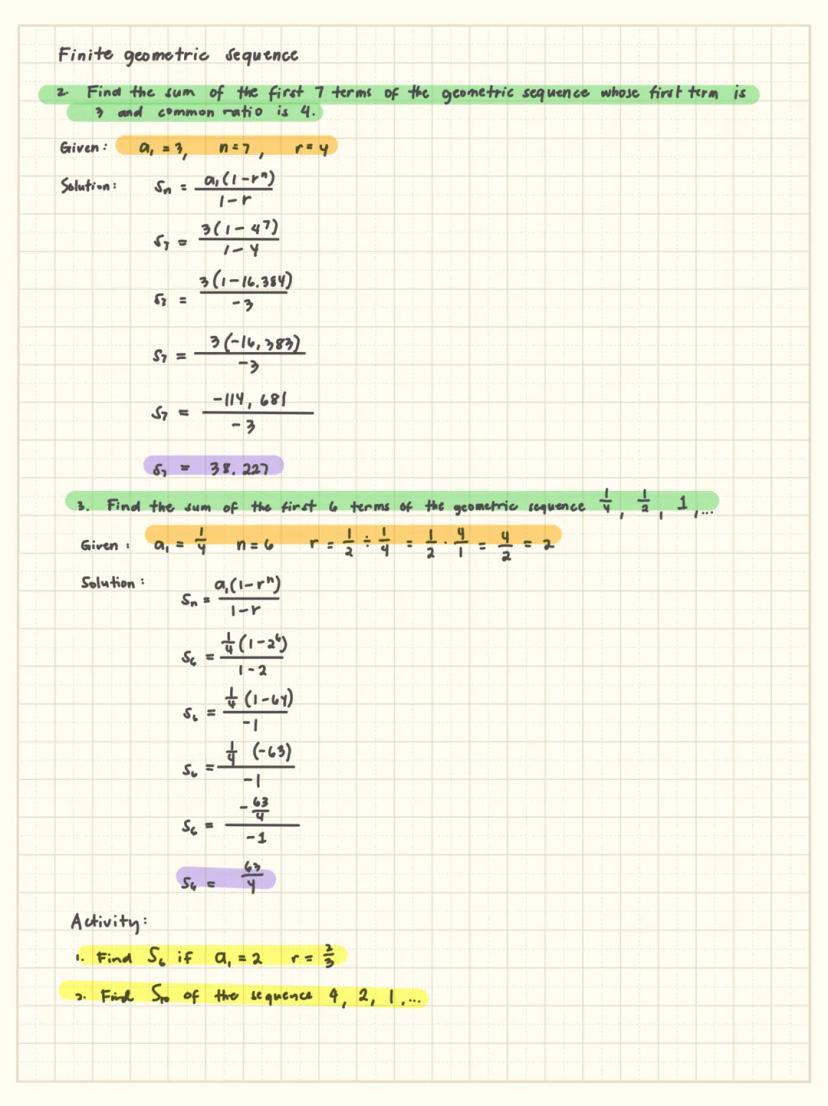 Finite geometric sequence
2. Find the sum of the first 7 terms of the geometric sequence whose first term is
3 and common ratio is 4.
Given: a₁ = 3, n=7, r=4
Solution: Sₙ = a₁(1-rⁿ) / 1-r
S₇ = 3(1-4⁷) / 1-4
S₇ = 3(1-16,384) / -3
S₇ = 3(-16,383) / -3
S₇ = -114,681 / -3
S₇ = 38,227
3. Find the sum of the first 6 terms of the geometric sequence 1/4, 1/2, 1,...
Given: a₁ = 1/4 n=6 r = 1/2 ÷ 1/4 = 1/2 · 4/1 = 4/2 = 2
Solution: Sₙ = a₁(1-rⁿ) / 1-r
S₆ = 1/4(1-2⁶) / 1-2
S₆ = 1/4(1-64) / -1
S₆ = 1/4 (-63) / -1
S₆ = -63/4 / -1
S₆ = 63/4
Activity:
1. Find S₆ if a₁ = 2 r = 2/3
2. Find S₁₀ of the sequence 4, 2, 1,...